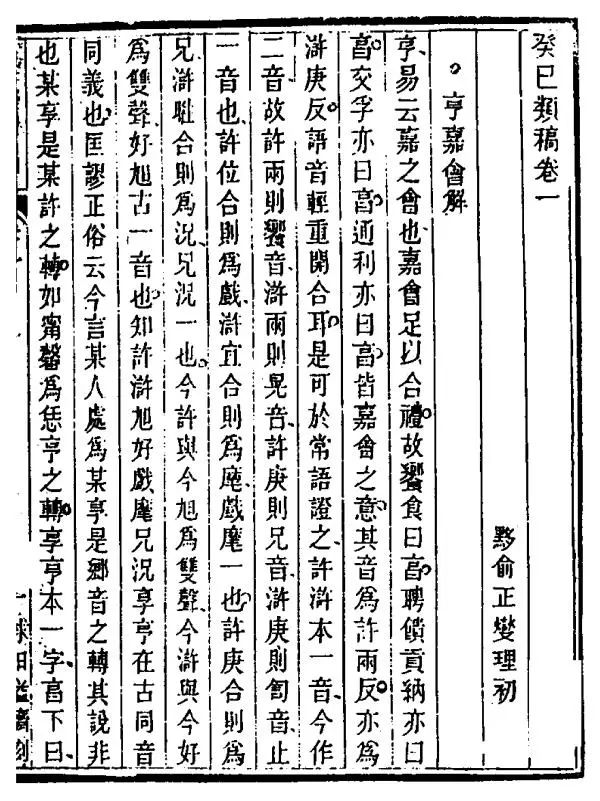 癸巳類稿卷一
黟俞正燮理初
。亨嘉會解
亨、易云嘉之會也嘉會足以合禮。故饗食曰亯。聘饋貢納亦曰
亯。交孚亦曰亯。通利亦曰亯。皆嘉會之意。其音為許兩反。亦為
滸庚反。語音輕重開合耳。是可於常語證之、許滸本一音、今作
二音、故許兩則饗音、滸兩則晃音、許庚則兄音、滸庚則訇音、止
一音也、許位合則為戲、滸宜合則為麾、戲麾一也、許庚合則為
兄、滸誑合則為況、兄況一也。今許與今旭為雙聲、今滸與今好
為雙聲、好旭古一音也、知許滸旭好戲麾兄況享亨在古同音
同義也、匡謬正俗云今言某人處為某享是鄉音之轉其說非
也某享是某許之轉。如甯馨為恁亨之轉。享亨本一字、亯下曰、